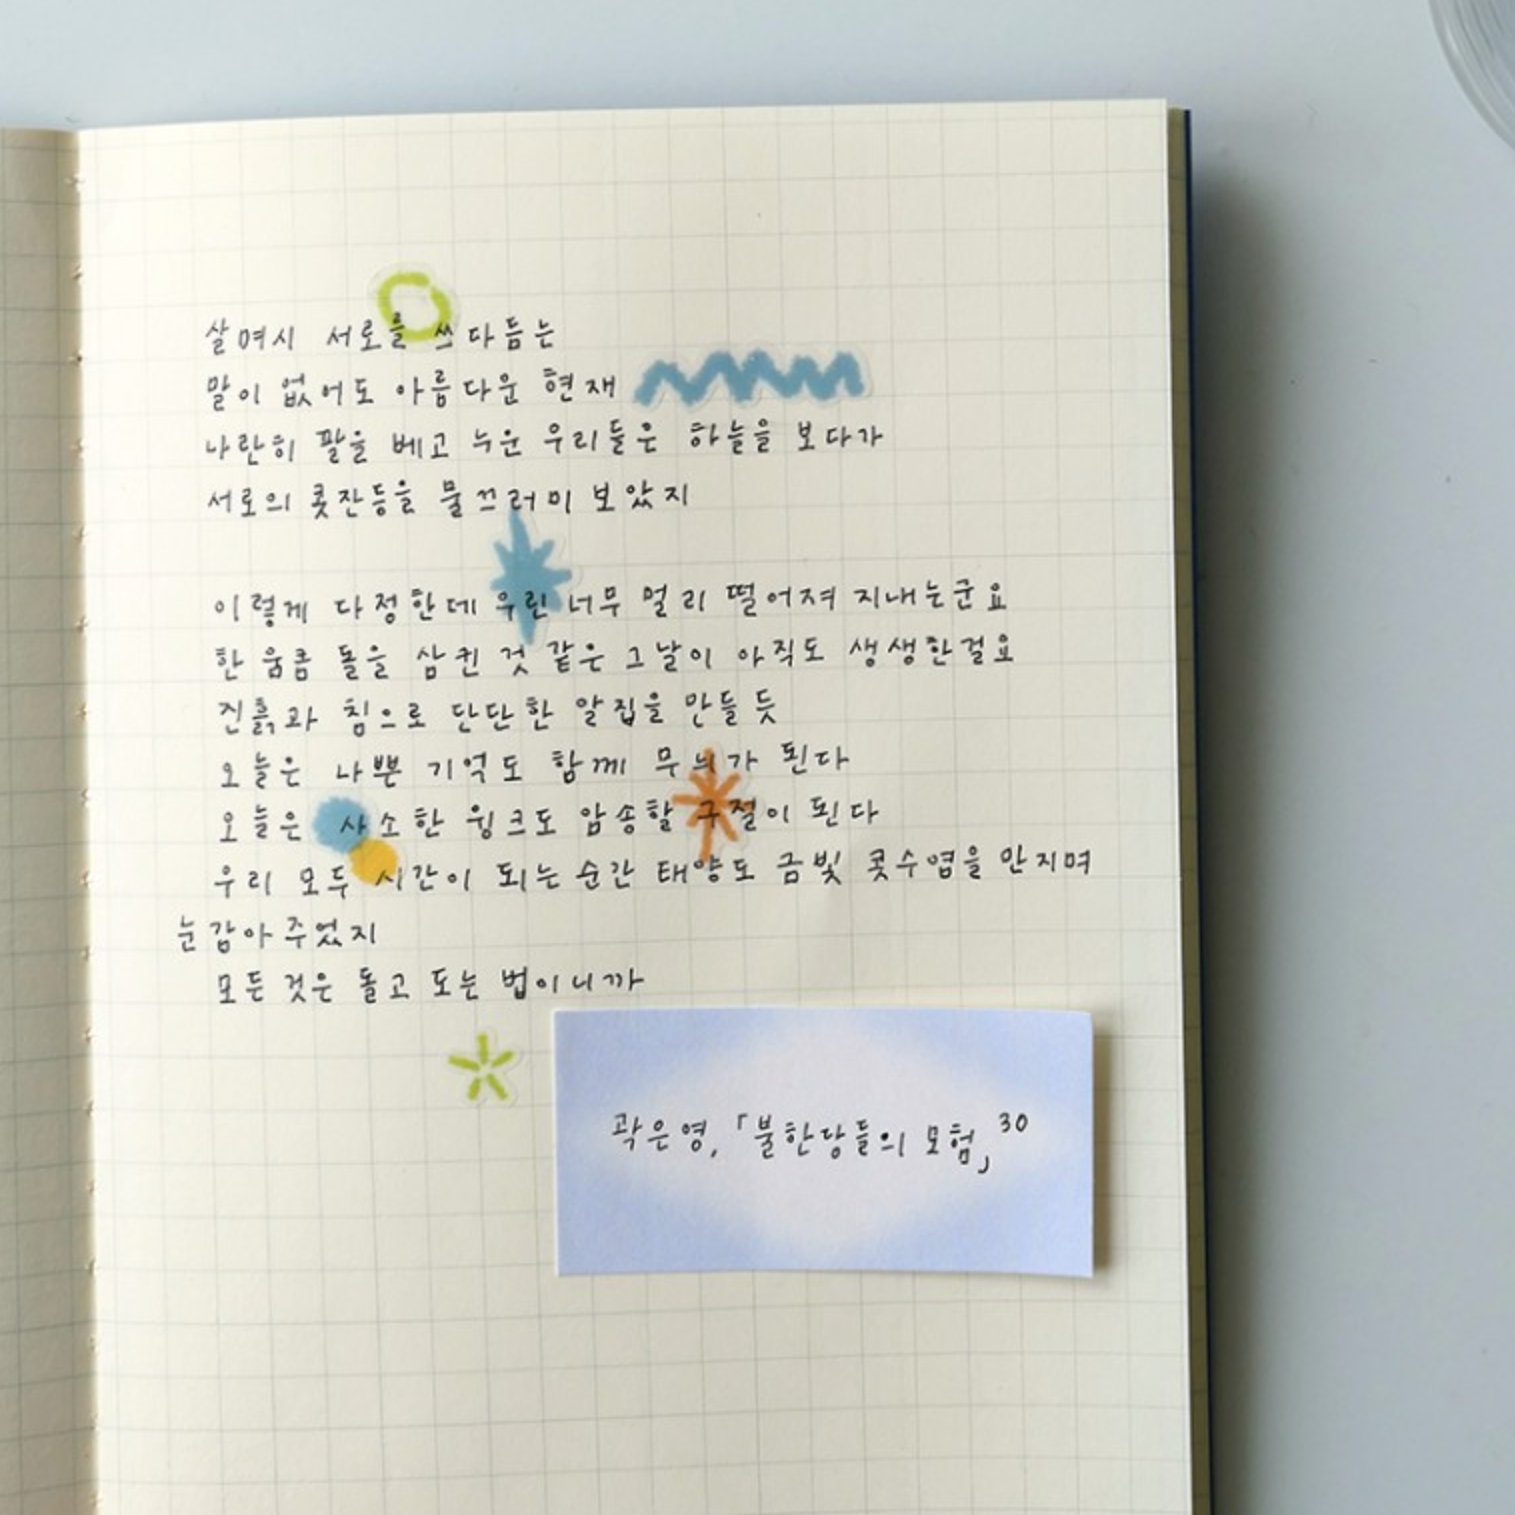 살며시 서로를 쓰다듬는
말이 없어도 아름다운 현재
나란히 팔을 베고 누운 우리들은 하늘을 보다가
서로의 콧잔등을 물끄러미 보았지
이렇게 다정한데 우린 너무 멀리 떨어져 지내는군요
한 움큼 돌을 삼킨 것 같은 그날이 아직도 생생한걸요
진흙과 침으로 단단한 알집을 만들 듯
오늘은 나쁜 기억도 함께 무늬가 된다
오늘은 사소한 윙크도 암송할 구절이 된다
우리 모두 시간이 되는 순간 태양도 금빛 콧수염을 만지며
눈감아 주었지
모든 것은 돌고 도는 법이니까
곽은영, 「불한당들의 모험」30